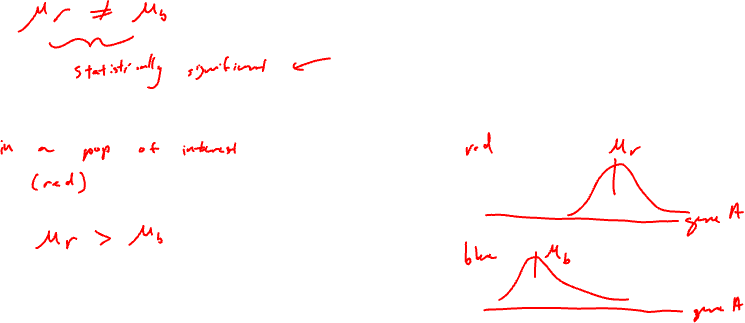 μr ≠ μb
statistically significant ←
in a pop of interest
(red)
μr > μb
red
μr
gene A
blue
μb
gene A